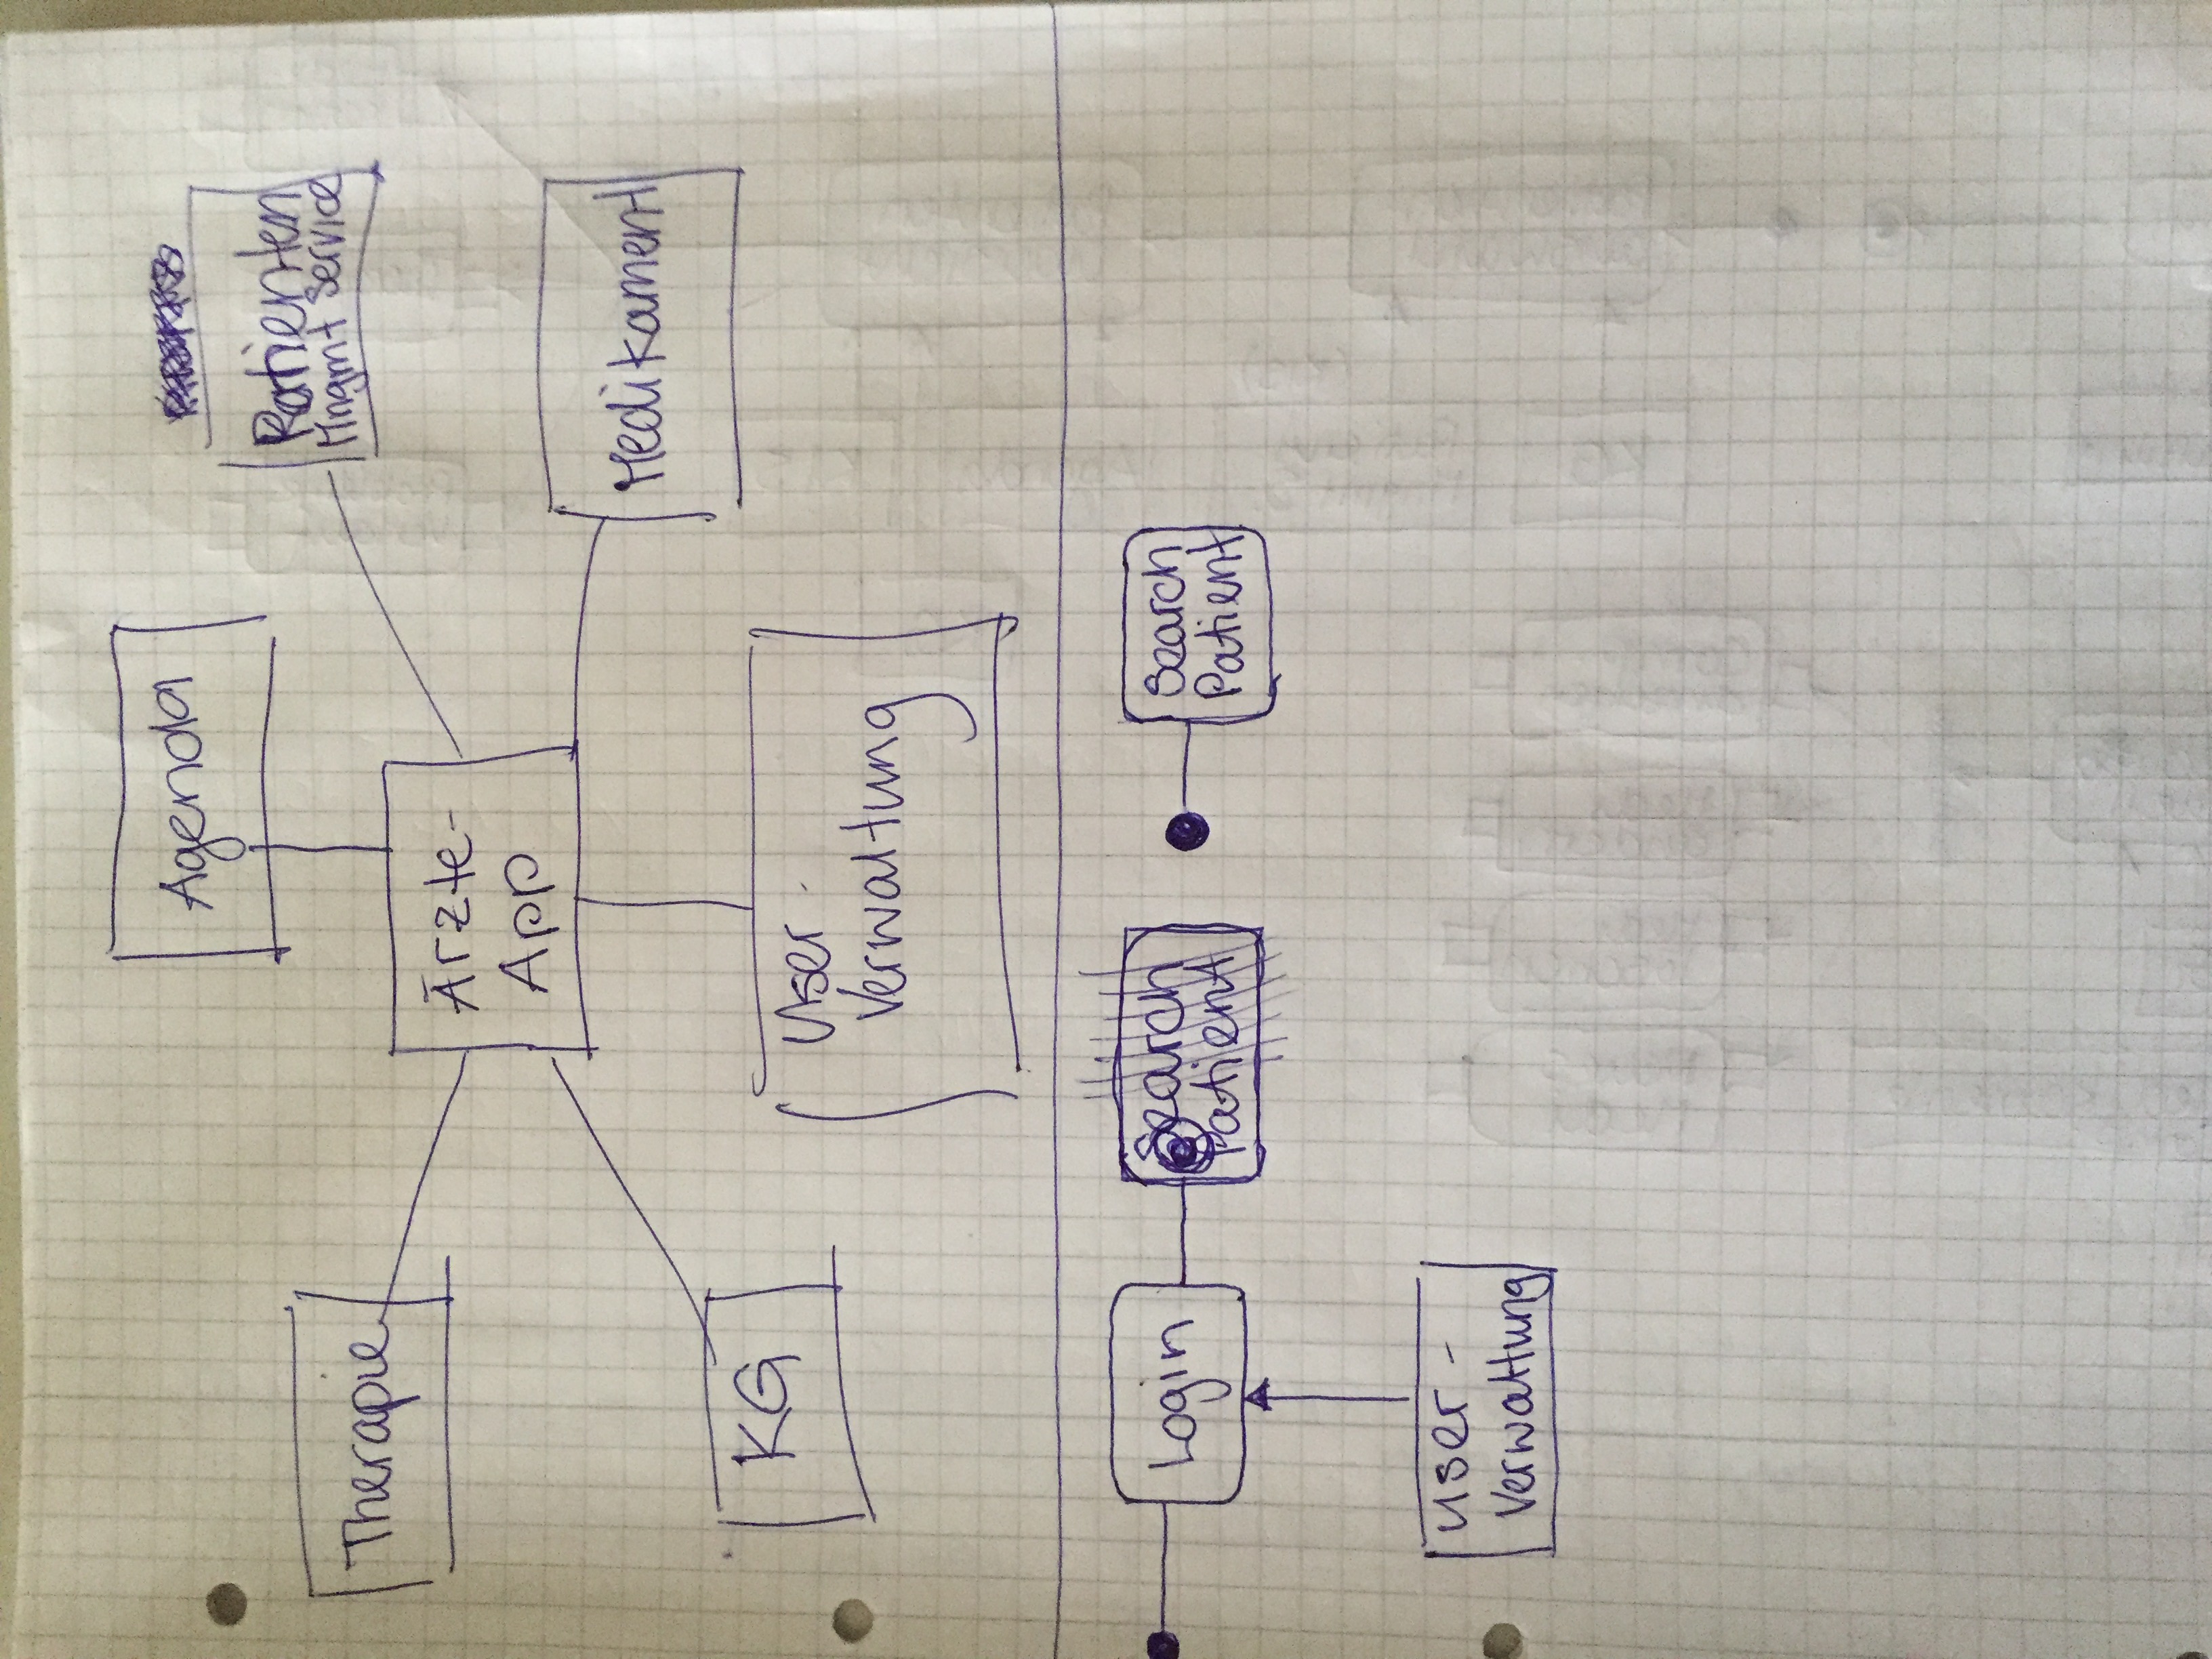 Agenda
Patienten
Mngmt Service
Therapie
Ärzte-
App
Medikament
KG
User-
Verwaltung
Login
Search
Patient
Search
Patient
User-
Verwaltung